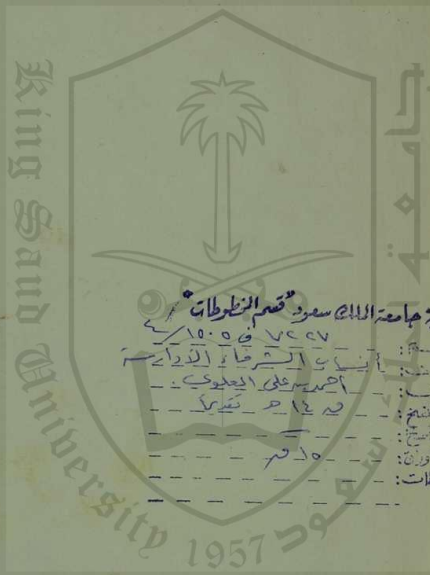 King Saud University
1957
جامعة الملك سعود "قسم المخطوطات"
٧٢٢٧ ف ١٥٠٥/٤
أنساب الشرفاء الأدارسة
أحمد بن علي العلوي
ق ١٤ هـ تقديرا
١٥ ق